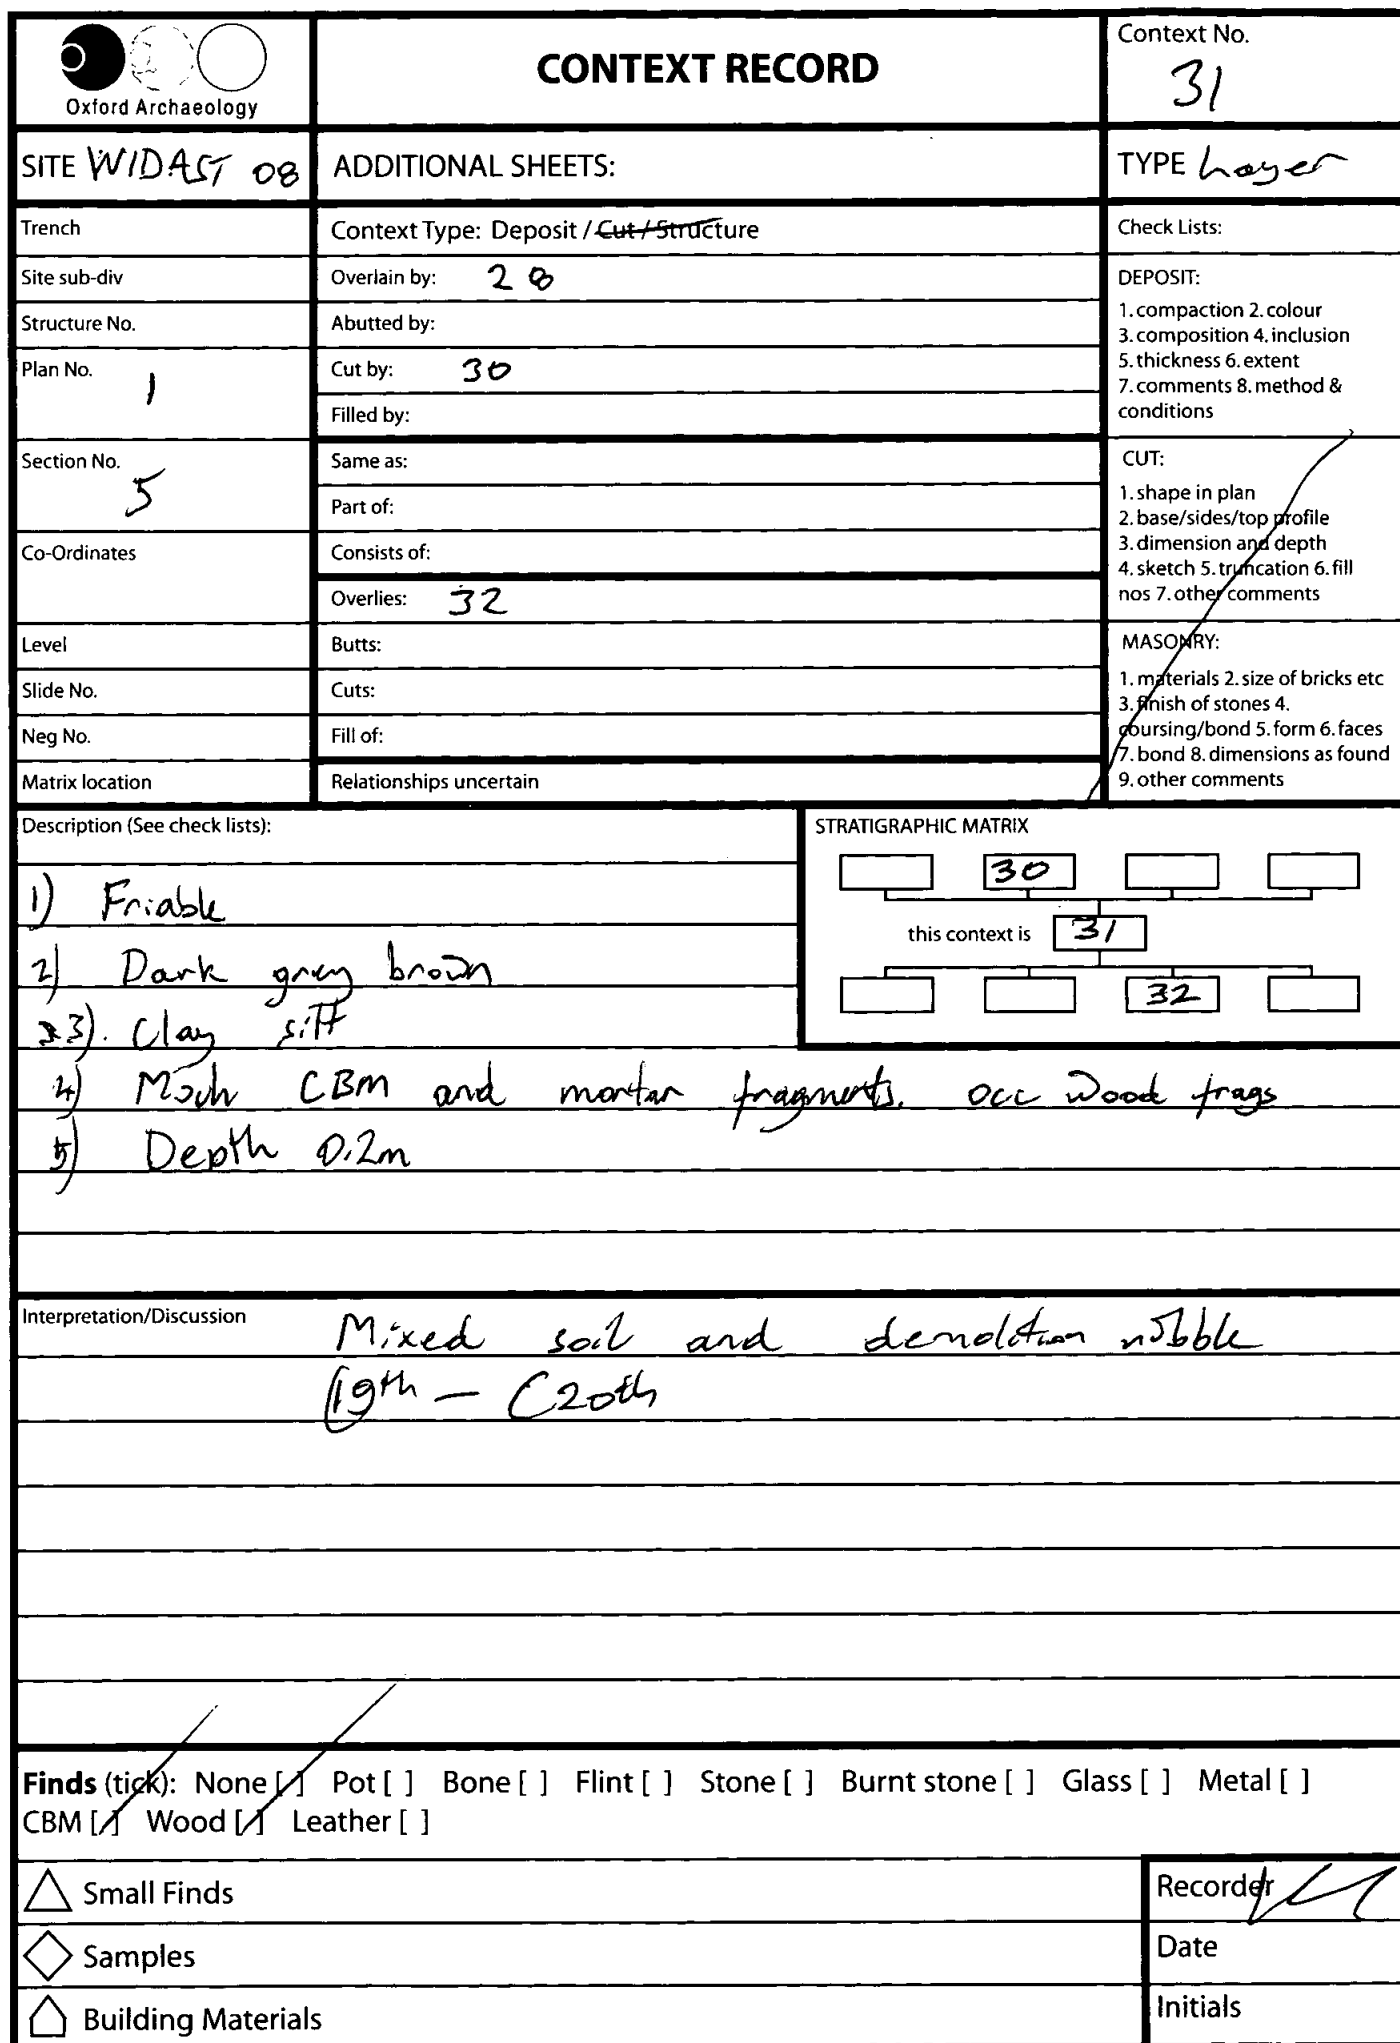 Oxford Archaeology
CONTEXT RECORD
Context No.
31
SITE WIDAST 08
ADDITIONAL SHEETS:
TYPE Layer
Trench
Context Type: Deposit / Cut / Structure
Check Lists:
Site sub-div
Overlain by: 28
Structure No.
Abutted by:
Plan No. 1
Cut by: 30
Filled by:
Section No. 5
Same as:
Part of:
Co-Ordinates
Consists of:
Overlies: 32
Level
Butts:
Slide No.
Cuts:
Neg No.
Fill of:
Matrix location
Relationships uncertain
DEPOSIT:
1. compaction 2. colour
3. composition 4. inclusion
5. thickness 6. extent
7. comments 8. method &
conditions
CUT:
1. shape in plan
2. base/sides/top profile
3. dimension and depth
4. sketch 5. truncation 6. fill
nos 7. other comments
MASONRY:
1. materials 2. size of bricks etc
3. finish of stones 4.
coursing/bond 5. form 6. faces
7. bond 8. dimensions as found
9. other comments
Description (See check lists):
1) Friable
2) Dark grey brown
3). Clay silt
4) Much CBM and mortar fragments. occ wood frags
5) Depth 0.2m
STRATIGRAPHIC MATRIX
30
this context is 31
32
Interpretation/Discussion
Mixed soil and demolition rubble
C19th – C20th
Finds (tick): None [ ] Pot [ ] Bone [ ] Flint [ ] Stone [ ] Burnt stone [ ] Glass [ ] Metal [ ]
CBM [/] Wood [/] Leather [ ]
Small Finds
Samples
Building Materials
Recorder
Date
Initials